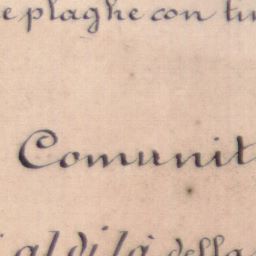 e plaghe con tu
Comunit
al di là della